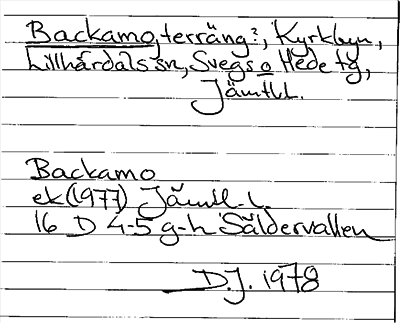 Backamo, terräng?, Kyrkbyn,
Lillhärdals sn, Svegs o Hede tg,
Jämtl.l.
Backamo
ek (1977) Jämtl. l.
16 D 4-5 g-h Säldervallen
D.J. 1978